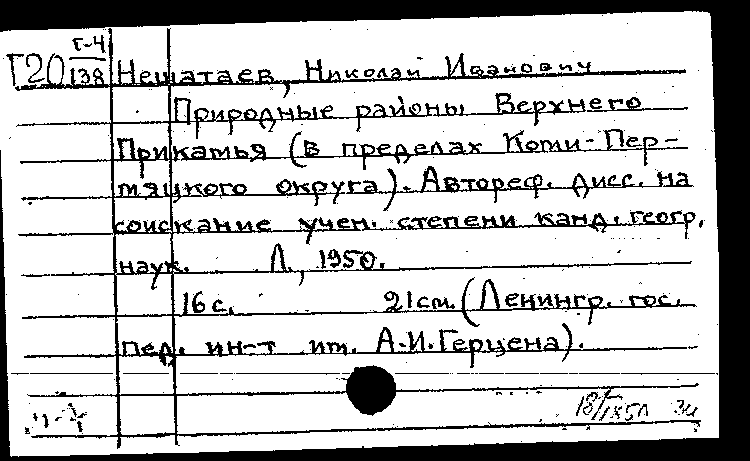 Г-4
Г20 138 Нешатаев, Николай Иванович
Природные районы Верхнего
Прикамья (в пределах Коми-Пер-
мяцкого округа). Автореф. дисс. на
соискание учен. степени канд. геогр.
наук. Л., 1950.
16 с. 21 см. (Ленингр. гос.
пед. ин-т им. А.И.Герцена).